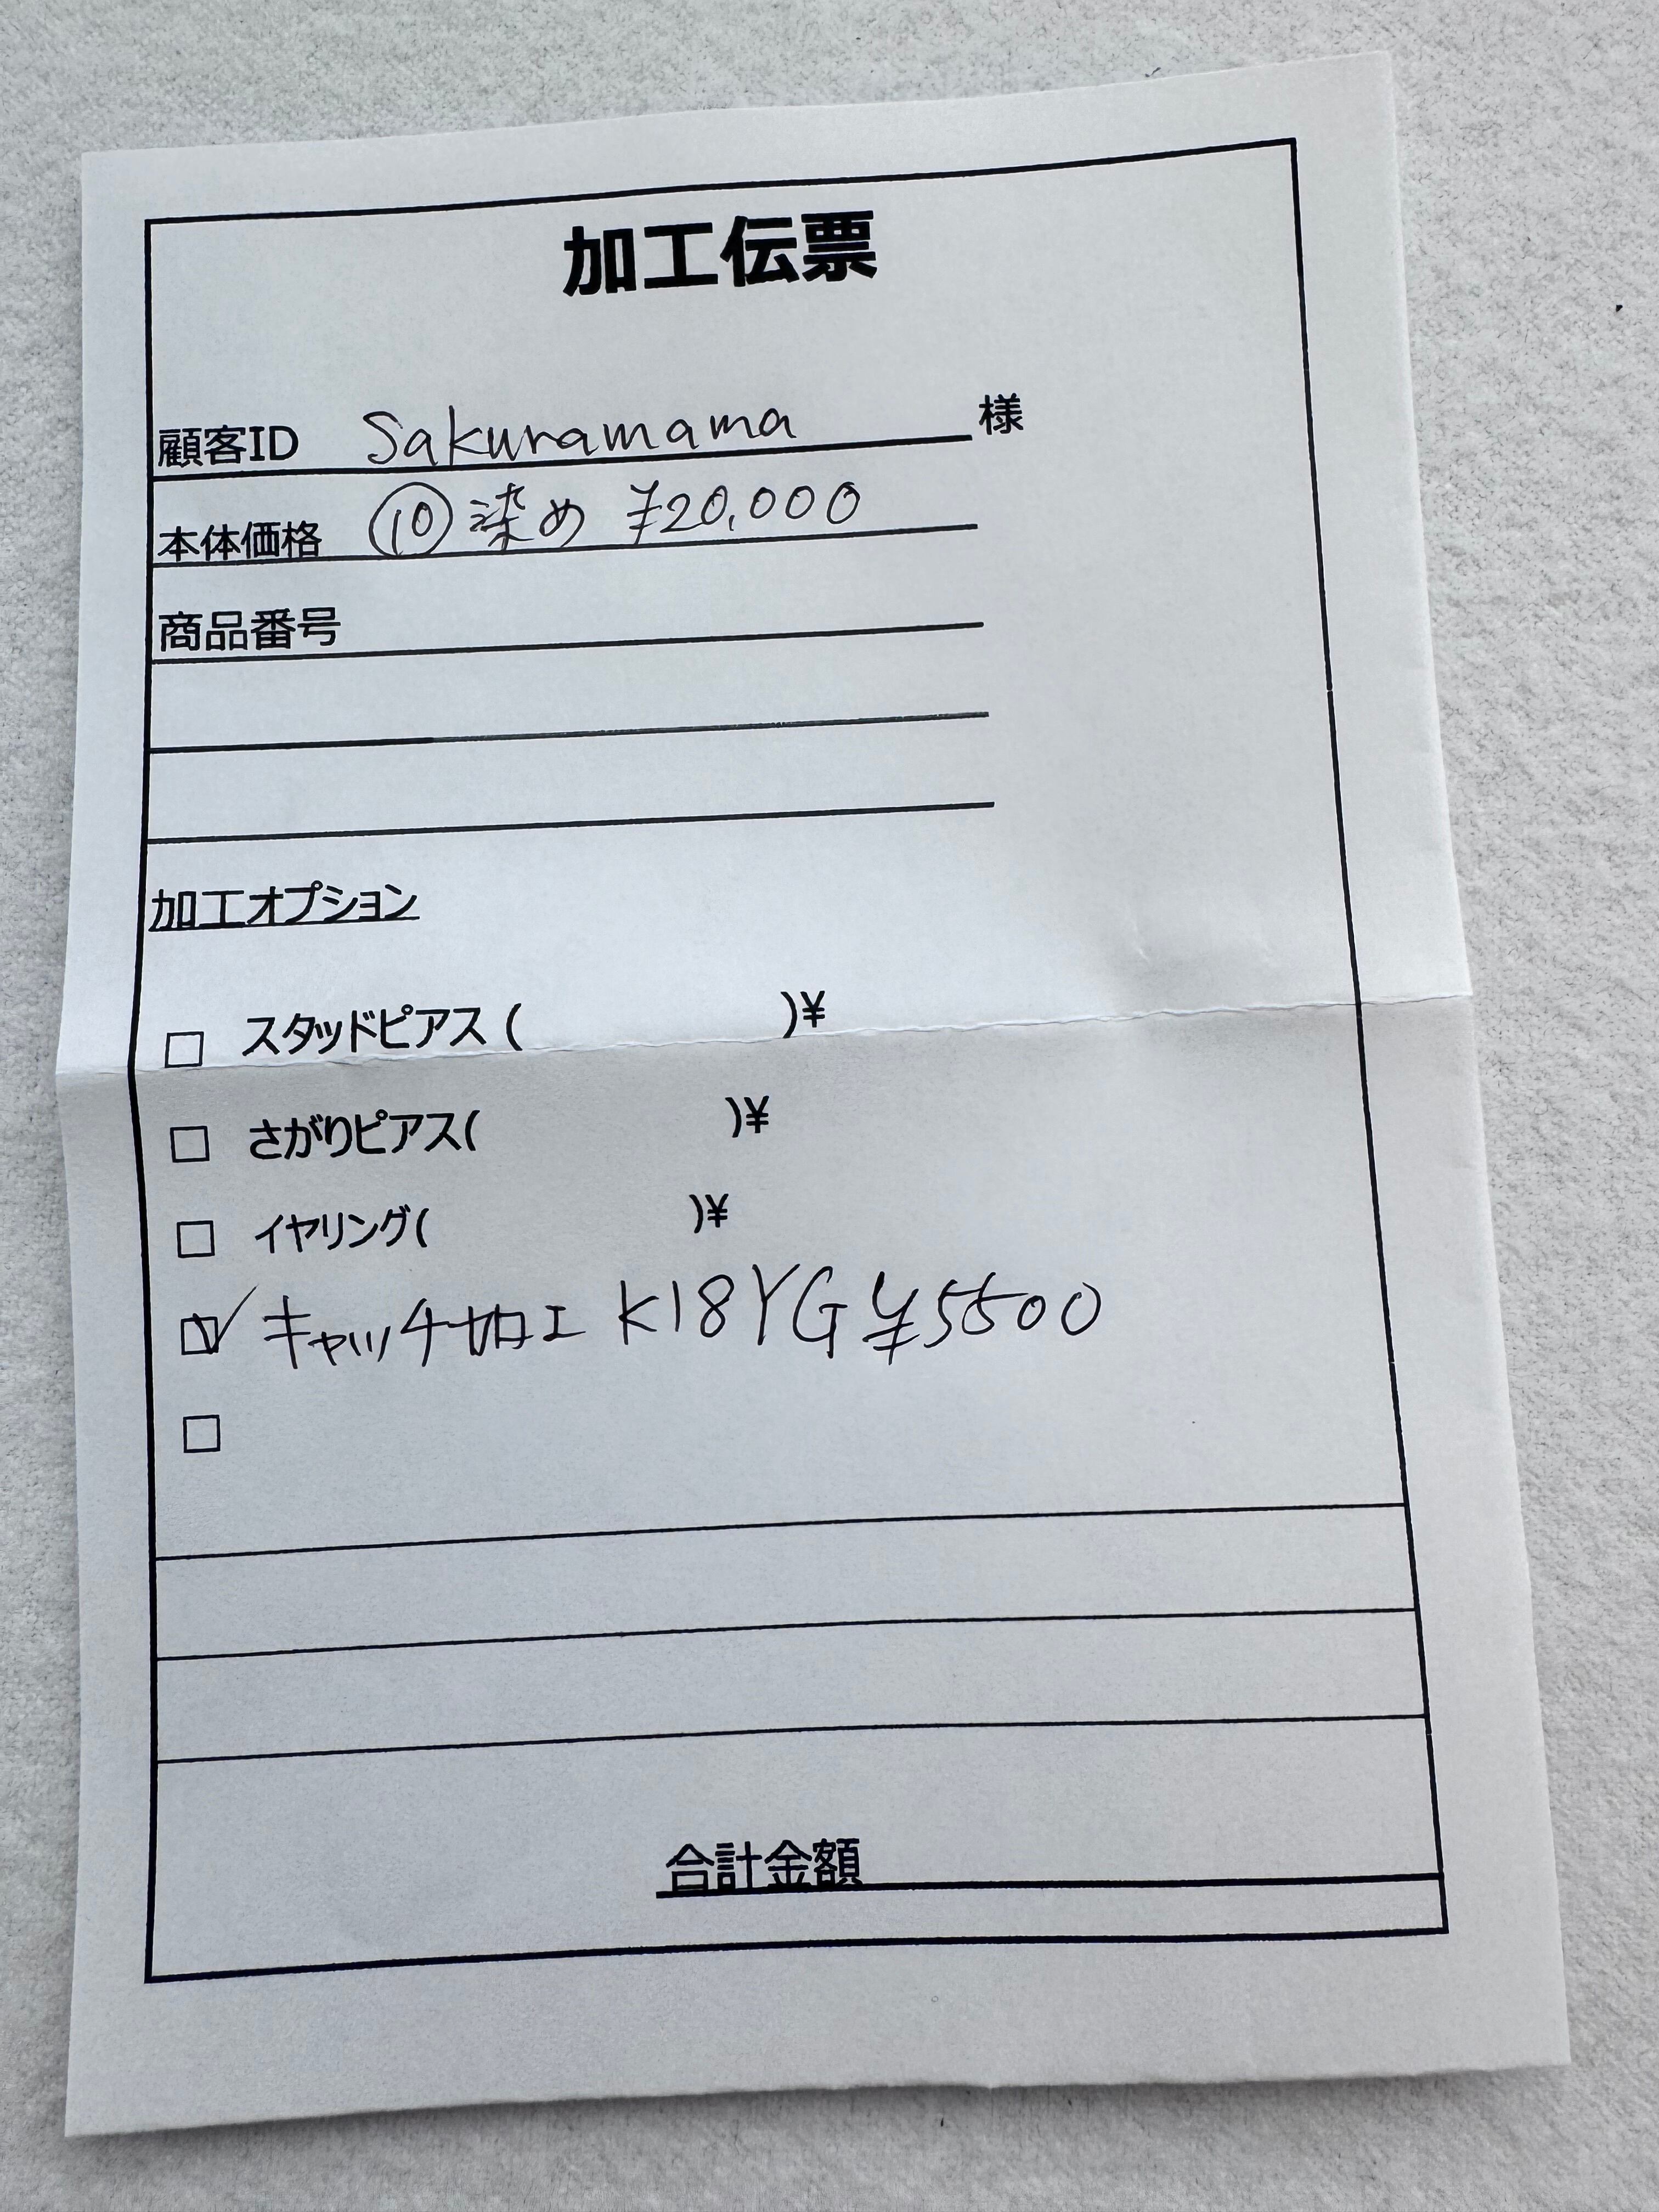 加工伝票
顧客ID Sakuramama 様
本体価格 ⑩染め ¥20,000
商品番号
加工オプション
□ スタッドピアス ( )¥
□ さがりピアス( )¥
□ イヤリング( )¥
☑ キャッチ加工 K18YG ¥5500
□
合計金額